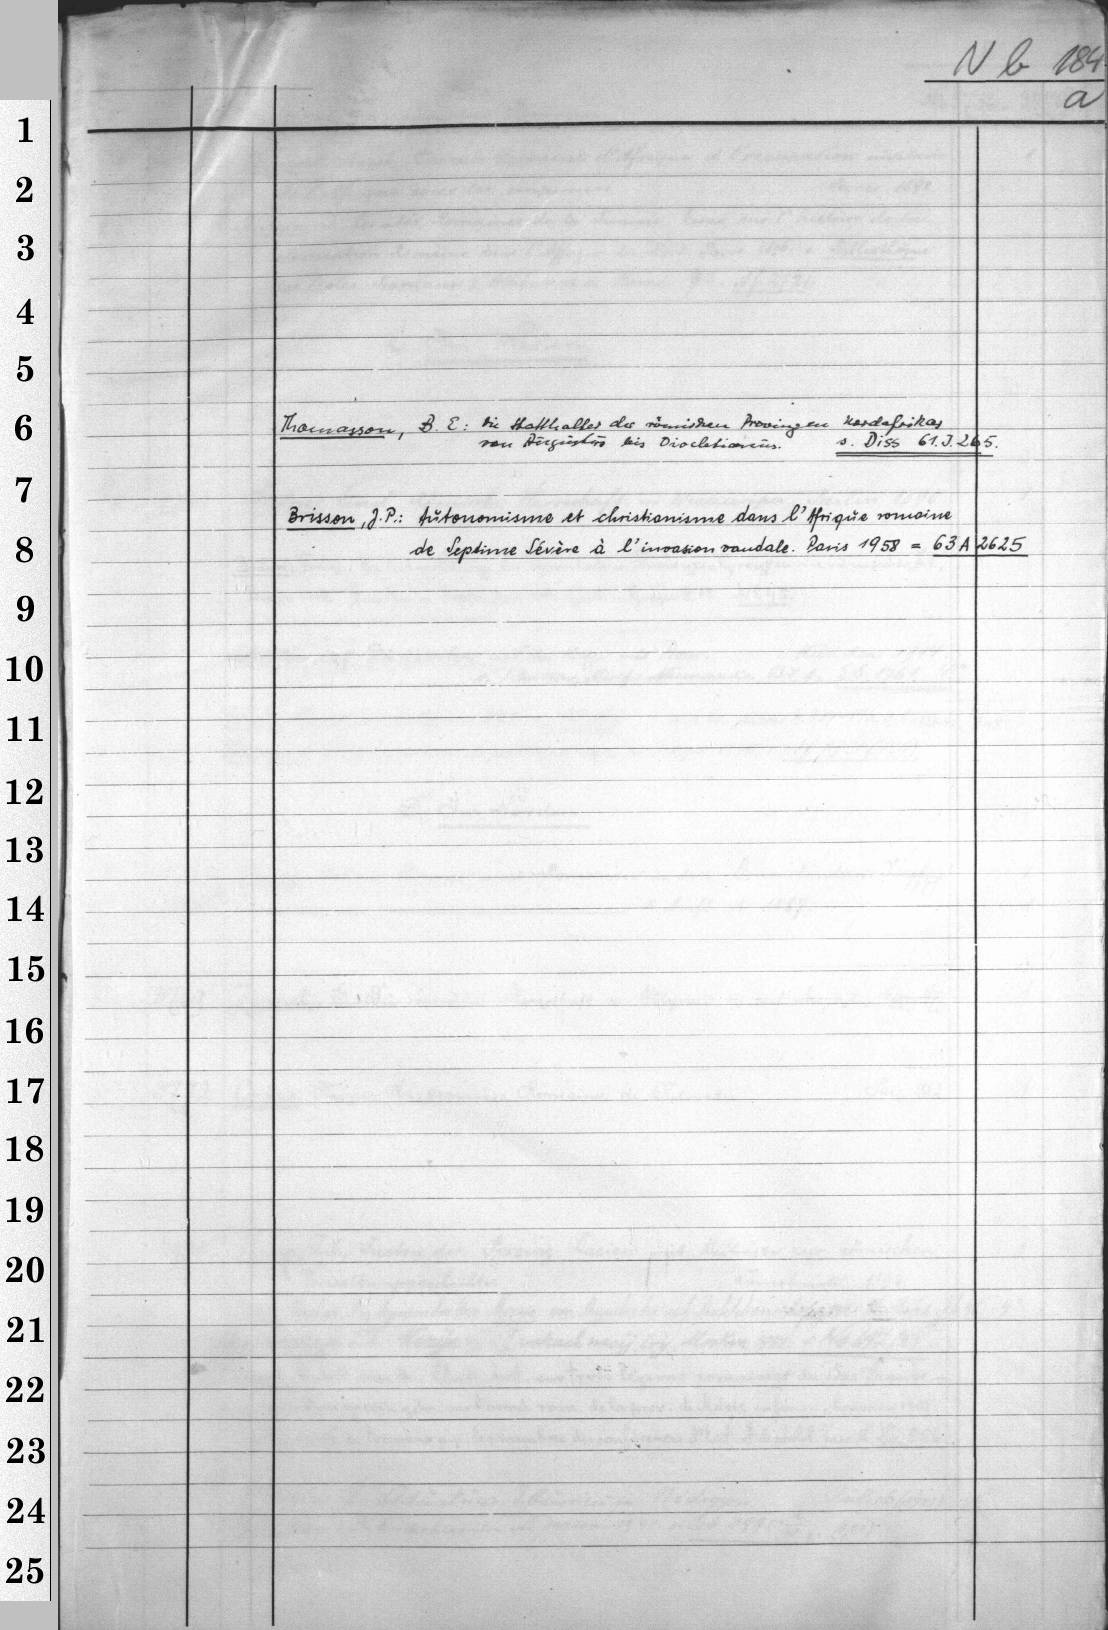 N b 184
a
1
2
3
4
5
6
Thomasson, B. E.: Die Statthalter der römischen Provinzen Nordafrikas
von Augustus bis Diocletianus. s. Diss 61.J.265.
7
Brisson, J.P.: Autonomisme et christianisme dans l'Afrique romaine
8
de Septime Sévère à l'invasion vandale. Paris 1958 = 63 A 2625
9
10
11
12
13
14
15
16
17
18
19
20
21
22
23
24
25